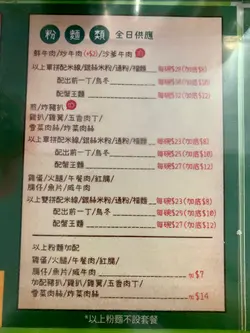 粉 麵 類 全日供應
鮮牛肉/炒牛肉(+$2)/沙爹牛肉
以上單拼配米線/銀絲米粉/通粉/福麵 每碗$20(加底$8)
配出前一丁/烏冬 每碗$22(加底$10)
配蟹王麵 每碗$22(加底$12)
煎/炸雞扒
雞扒/雞翼/五香肉丁/
雪菜肉絲/炸菜肉絲
以上單拼配米線/銀絲米粉/通粉/福麵 每碗$23(加底$8)
配出前一丁/烏冬 每碗$25(加底$10)
配蟹王麵 每碗$27(加底$12)
雞蛋/火腿/午餐肉/紅腸/
腸仔/魚片/咸牛肉
以上雙拼配米線/銀絲米粉/通粉/福麵 每碗$23(加底$8)
配出前一丁/烏冬 每碗$25(加底$10)
配蟹王麵 每碗$27(加底$12)
雞蛋/火腿/午餐肉/紅腸/
腸仔/魚片/咸牛肉 加$7
加配豬扒/雞扒/雞翼/五香肉丁/
雪菜肉絲/炸菜肉絲 加$14
以上粉麵加配
*以上粉麵不設套餐